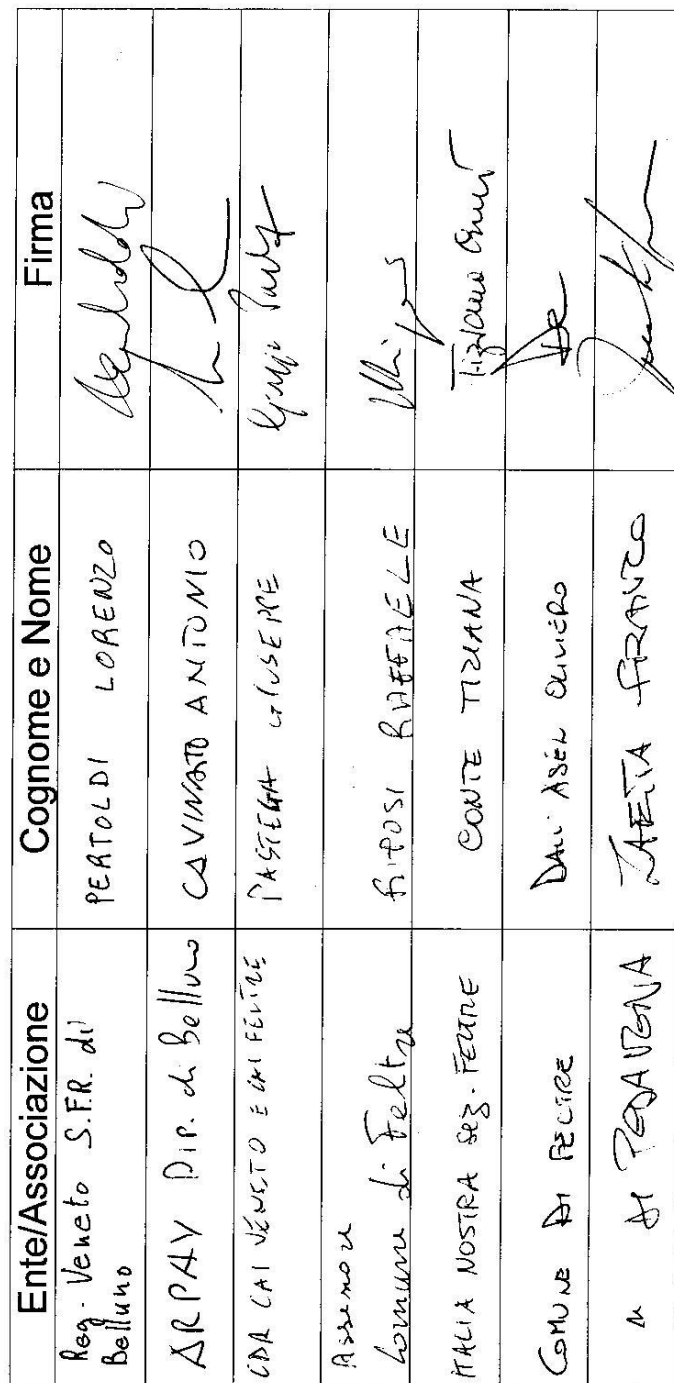 Ente/Associazione Cognome e Nome Firma
Reg. Veneto S.F.R. di
Belluno PERTOLDI LORENZO
ARPAV Dip. di Belluno CAVINATO ANTONIO
CAI VENETO E CAI FELTRE PASTEGA GIUSEPPE
Assessore
Comune di Feltre RAFFAELE
ITALIA NOSTRA sez. FELTRE CONTE TIZIANA Tiziana Conte
COMUNE DI FELTRE OLIVIERO
" DI PEDAVENA ZAETTA FRANCO